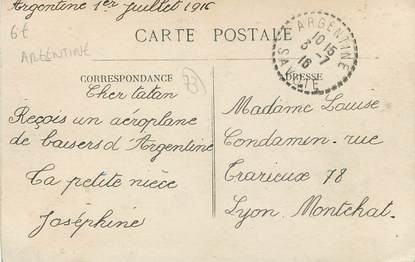 Argentine 1er juillet 1916
6€
ARGENTINE
CARTE POSTALE
ARGENTINE
10 15
3 -7
16
SAVOIE
CORRESPONDANCE
73
ADRESSE
Cher taten
Reçois un aéroplane
de baisers d'Argentine
Ta petite nièce
Joséphine
Madame Louise
Condamin. rue
Trarieux 78
Lyon. Montchat.